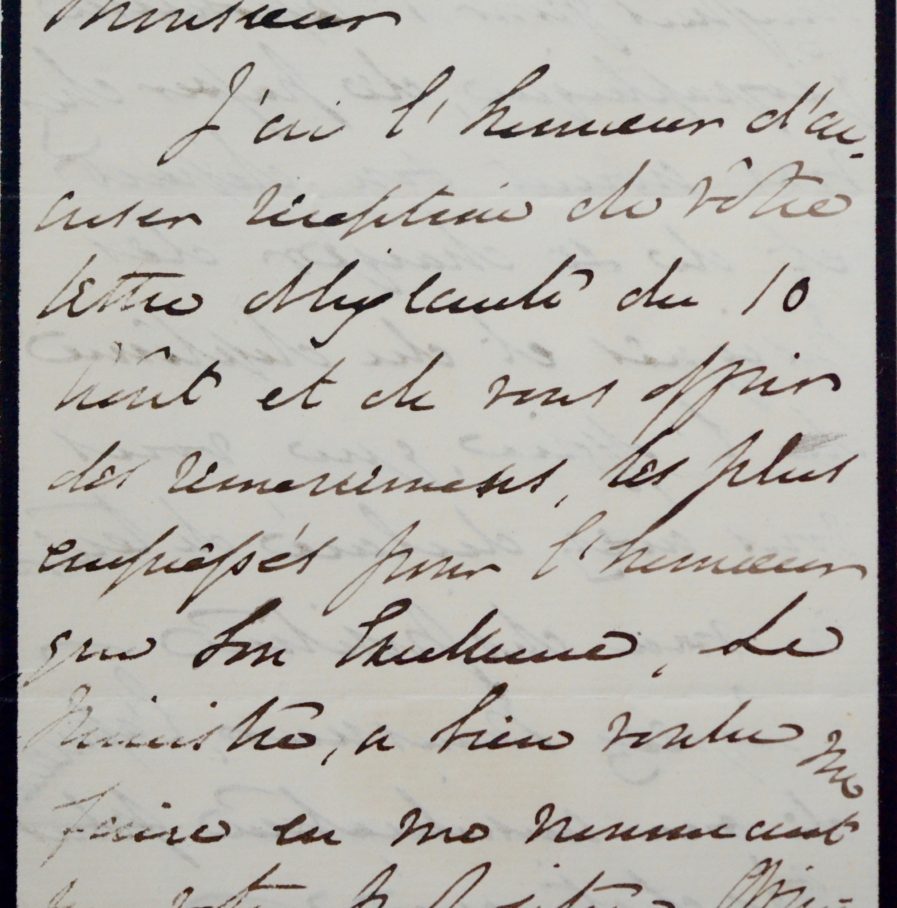 Monsieur
J'ai l'honneur d'ac-
cuser réception de vôtre
lettre obligeante du 10
Août et de vous offrir
des remerciments, les plus
empressés pour l'honneur
que Son Excellence, Le
Ministre, a bien voulu me
faire en me nommant